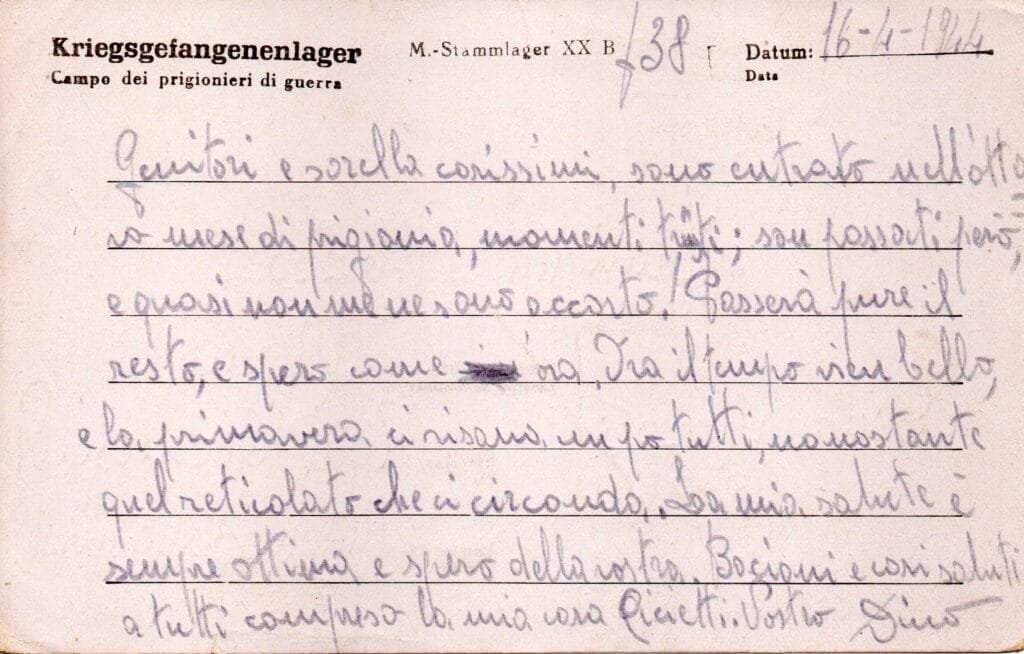 Kriegsgefangenenlager M.-Stammlager XX B 738 Datum: 16-4-1944
Campo dei prigionieri di guerra Data
Genitori e sorella carissimi, sono entrato nell'otta
vo mese di prigionia, momenti tristi; son passati però,
e quasi non me ne sono accorto! Passerà pure il
resto, e spero come ora. Tra il tempo vien bello,
e la primavera ci risana un po tutti, nonostante
quel reticolato che ci circonda. La mia salute è
sempre ottima e spero della vostra. Bacioni e cari saluti
a tutti compreso la mia cara Vostro Dino